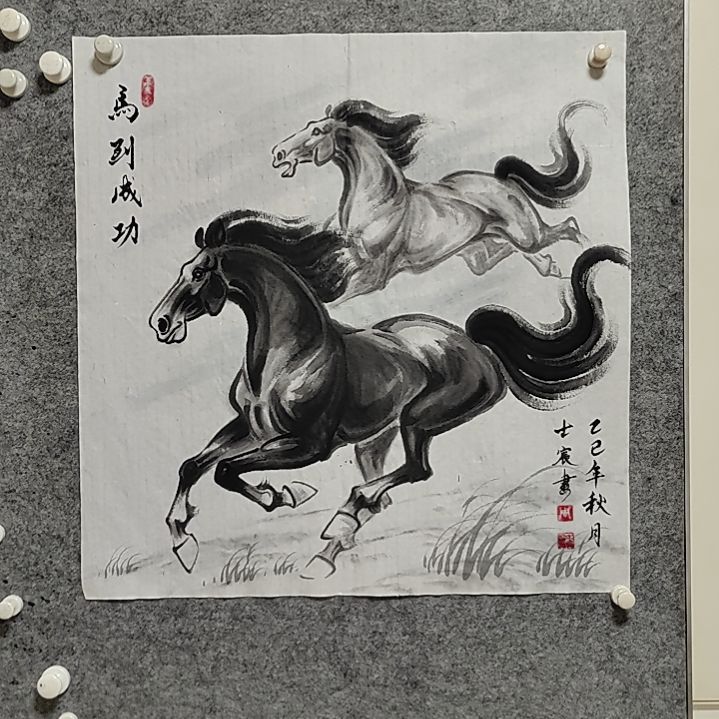 馬到成功
乙巳年秋月
士宾畫